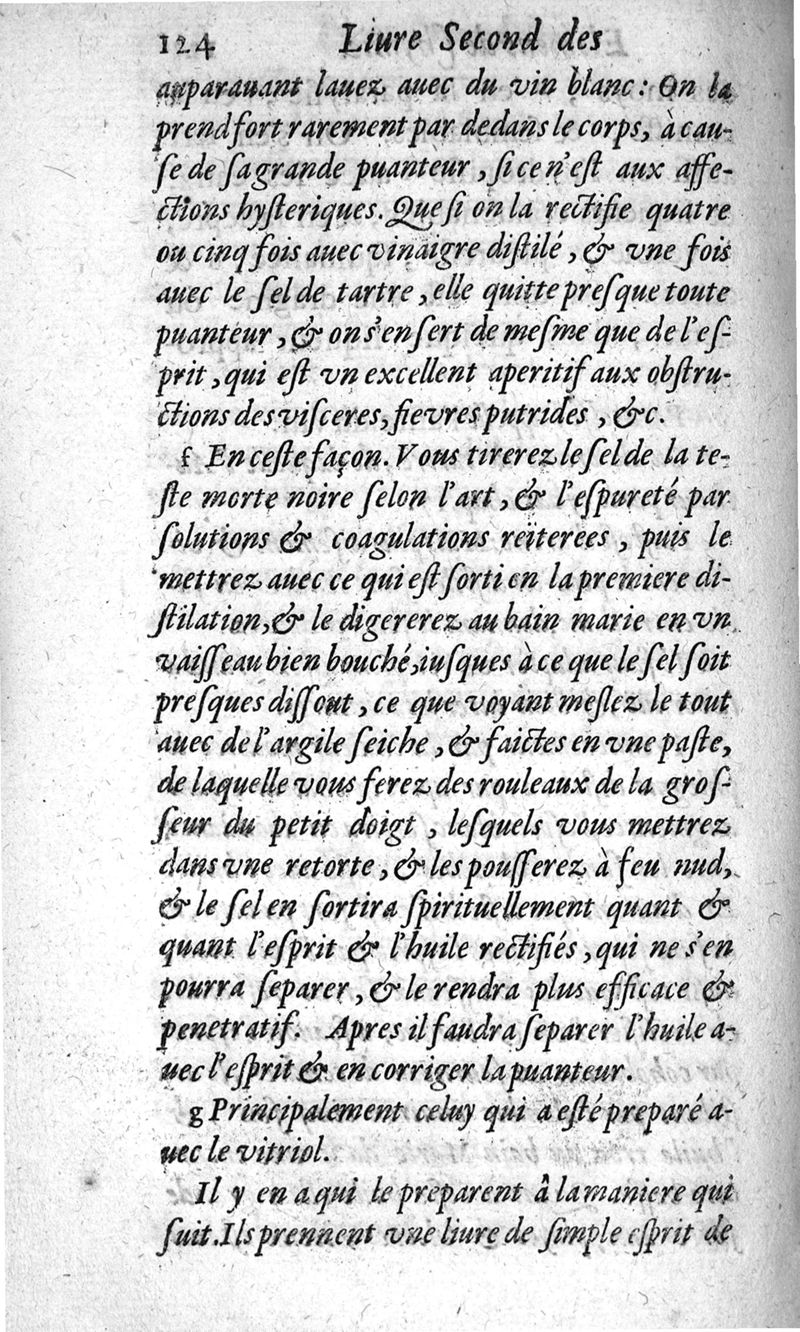 124 Liure Second des
auparauant lauez auec du vin blanc: On la
prend fort rarement par dedans le corps, à cau-
ſe de ſa grande puanteur, ſi ce n'eſt aux affe-
ctions hyſteriques. Que ſi on la rectifie quatre
ou cinq fois auec vinaigre diſtilé, & vne fois
auec le ſel de tartre, elle quitte preſque toute
puanteur, & on s'en ſert de meſme que de l'eſ-
prit, qui eſt vn excellent aperitif aux obſtru-
ctions des viſceres, fievres putrides, &c.
f En ceſte façon. Vous tirerez le ſel de la te-
ſte morte noire ſelon l'art, & l'eſpureté par
ſolutions & coagulations reïterees, puis le
mettrez auec ce qui eſt ſorti en la premiere di-
ſtilation, & le digererez au bain marie en vn
vaiſſeau bien bouché, iuſques à ce que le ſel ſoit
preſques diſſout, ce que voyant meſlez le tout
auec de l'argile ſeiche, & faictes en vne paſte,
de laquelle vous ferez des rouleaux de la groſ-
ſeur du petit doigt, leſquels vous mettrez
dans vne retorte, & les pouſſerez à feu nud,
& le ſel en ſortira ſpirituellement quant &
quant l'eſprit & l'huile rectifiés, qui ne s'en
pourra ſeparer, & le rendra plus efficace &
penetratif. Apres il faudra ſeparer l'huile a-
uec l'eſprit & en corriger la puanteur.
g Principalement celuy qui a eſté preparé a-
uec le vitriol.
Il y en a qui le preparent â la maniere qui
ſuit. Ils prennent vne liure de ſimple eſprit de